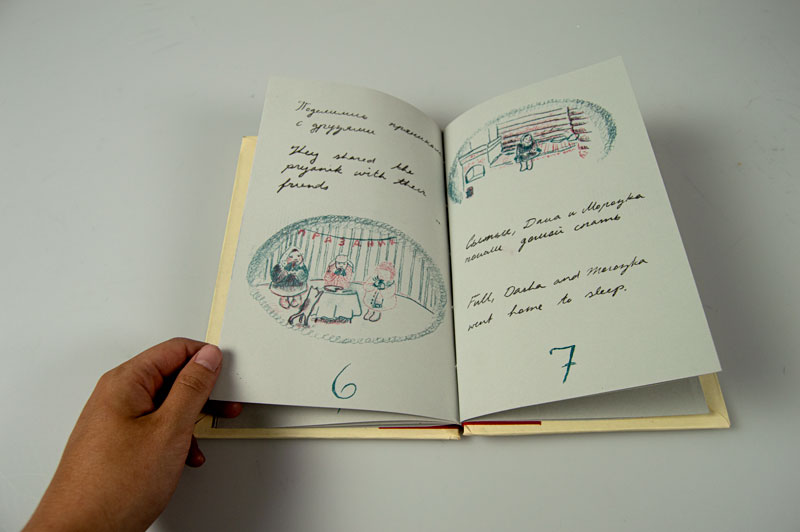 Поделились пряниками
с друзьями
They shared the
pryanik with their
friends
ПРАЗДНИК
6
Сытые, Даша и Морозка
пошли домой спать
Full, Dasha and Morozka
went home to sleep.
7